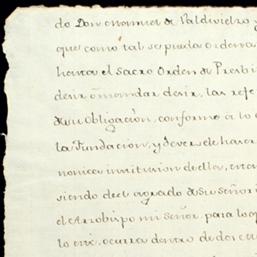 do Don Manuel de Valdivielzo y
que como tal se pueda Ordena
hasta el Sacro Orden de Presbi
decir ò mandar decir, las refe
de su Obligaciòn, conforme a lo
la Fundaciòn, y de verse le hacer
nonica institucion de ella, en
siendo del agrado de su Señori
el Arzobispo mi Señor, para lo q
lo cite, ocurra dentro de dos